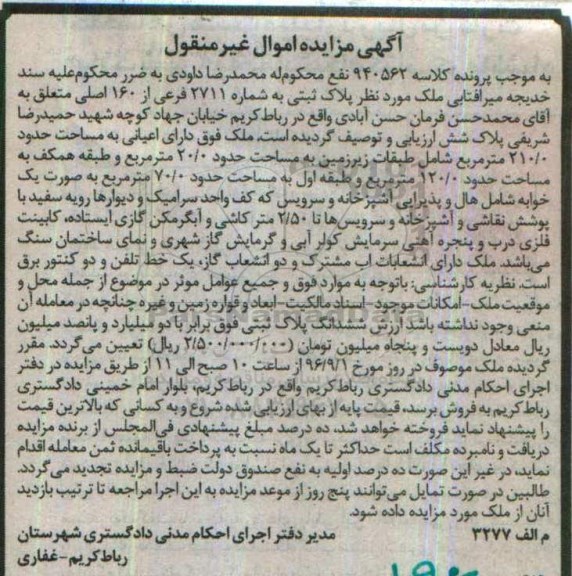 آگهی مزایده اموال غیرمنقول
به موجب پرونده کلاسه ۹۴۰۵۶۲ نفع محکوم‌له محمدرضا داودی به ضرر محکوم‌علیه سند
خدیجه میرآفتابی ملک مورد نظر پلاک ثبتی به شماره ۲۷۱۱ فرعی از ۱۶۰ اصلی متعلق به
آقای محمدحسن فرمان حسن آبادی واقع در رباط‌کریم خیابان جهاد کوچه شهید حمیدرضا
شریفی پلاک شش ارزیابی و توصیف گردیده است. ملک فوق دارای اعیانی به مساحت حدود
۲۱۰/۰ مترمربع شامل طبقات زیرزمین به مساحت حدود ۲۰/۰ مترمربع و طبقه همکف به
مساحت حدود ۱۲۰/۰ مترمربع و طبقه اول به مساحت حدود ۷۰/۰ مترمربع به صورت یک
خوابه شامل هال و پذیرایی آشپزخانه و سرویس که کف واحد سرامیک و دیوارها رویه سفید با
پوشش نقاشی و آشپزخانه و سرویس‌ها تا ۲/۵۰ متر کاشی و آبگرمکن گازی ایستاده، کابینت
فلزی درب و پنجره آهنی سرمایش کولر آبی و گرمایش گاز شهری و نمای ساختمان سنگ
می‌باشد. ملک دارای انشعابات آب مشترک و دو انشعاب گاز، یک خط تلفن و دو کنتور برق
است. نظریه کارشناسی: باتوجه به موارد فوق و جمیع عوامل موثر در موضوع از جمله محل و
موقعیت ملک-امکانات موجود-اسناد مالکیت-ابعاد و قواره زمین و غیره چنانچه در معامله آن
منعی وجود نداشته باشد ارزش ششدانگ پلاک ثبتی فوق برابر با دو میلیارد و پانصد میلیون
ریال معادل دویست و پنجاه میلیون تومان (۲/۵۰۰/۰۰۰/۰۰۰ ریال) تعیین می‌گردد. مقرر
گردیده ملک موصوف در روز مورخ ۹۶/۹/۱ از ساعت ۱۰ صبح الی ۱۱ از طریق مزایده در دفتر
اجرای احکام مدنی دادگستری رباط‌کریم واقع در رباط‌کریم، بلوار امام خمینی دادگستری
رباط‌کریم به فروش برسد، قیمت پایه از بهای ارزیابی شده شروع و به کسانی که بالاترین قیمت
را پیشنهاد نماید فروخته خواهد شد، ده درصد مبلغ پیشنهادی فی‌المجلس از برنده مزایده
دریافت و نامبرده مکلف است حداکثر تا یک ماه نسبت به پرداخت باقیمانده ثمن معامله اقدام
نماید، در غیر این صورت ده درصد اولیه به نفع صندوق دولت ضبط و مزایده تجدید می‌گردد.
طالبین در صورت تمایل می‌توانند پنج روز از موعد مزایده به این اجرا مراجعه تا ترتیب بازدید
آنان از ملک مورد مزایده داده شود.
م الف ۳۲۷۷ مدیر دفتر اجرای احکام مدنی دادگستری شهرستان
رباط‌کریم-غفاری